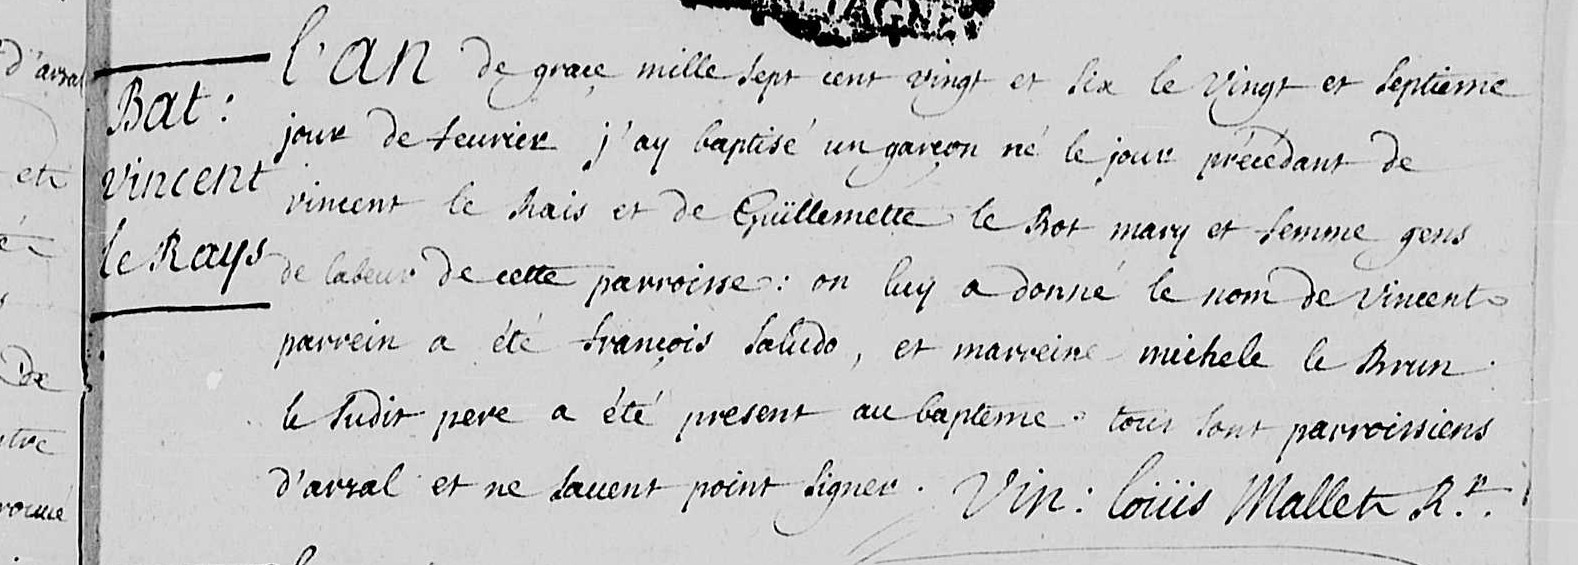 Bat:
vincent
le Rays
l'an de grace mille sept cent vingt et six le vingt et septieme
jour de feuvrier j'ay baptisé un garçon né le jour précédant de
vincent le Rais et de Guillemette le Rot mary et femme gens
de labeur de cette parroisse: on luy a donné le nom de vincent
parrein a été françois Saludo, et marreine michele le Brun
le sudit pere a été present au bapteme. tous sont parroissiens
d'arzal et ne sauent point signer. Vin: loüis Mallet Rr.